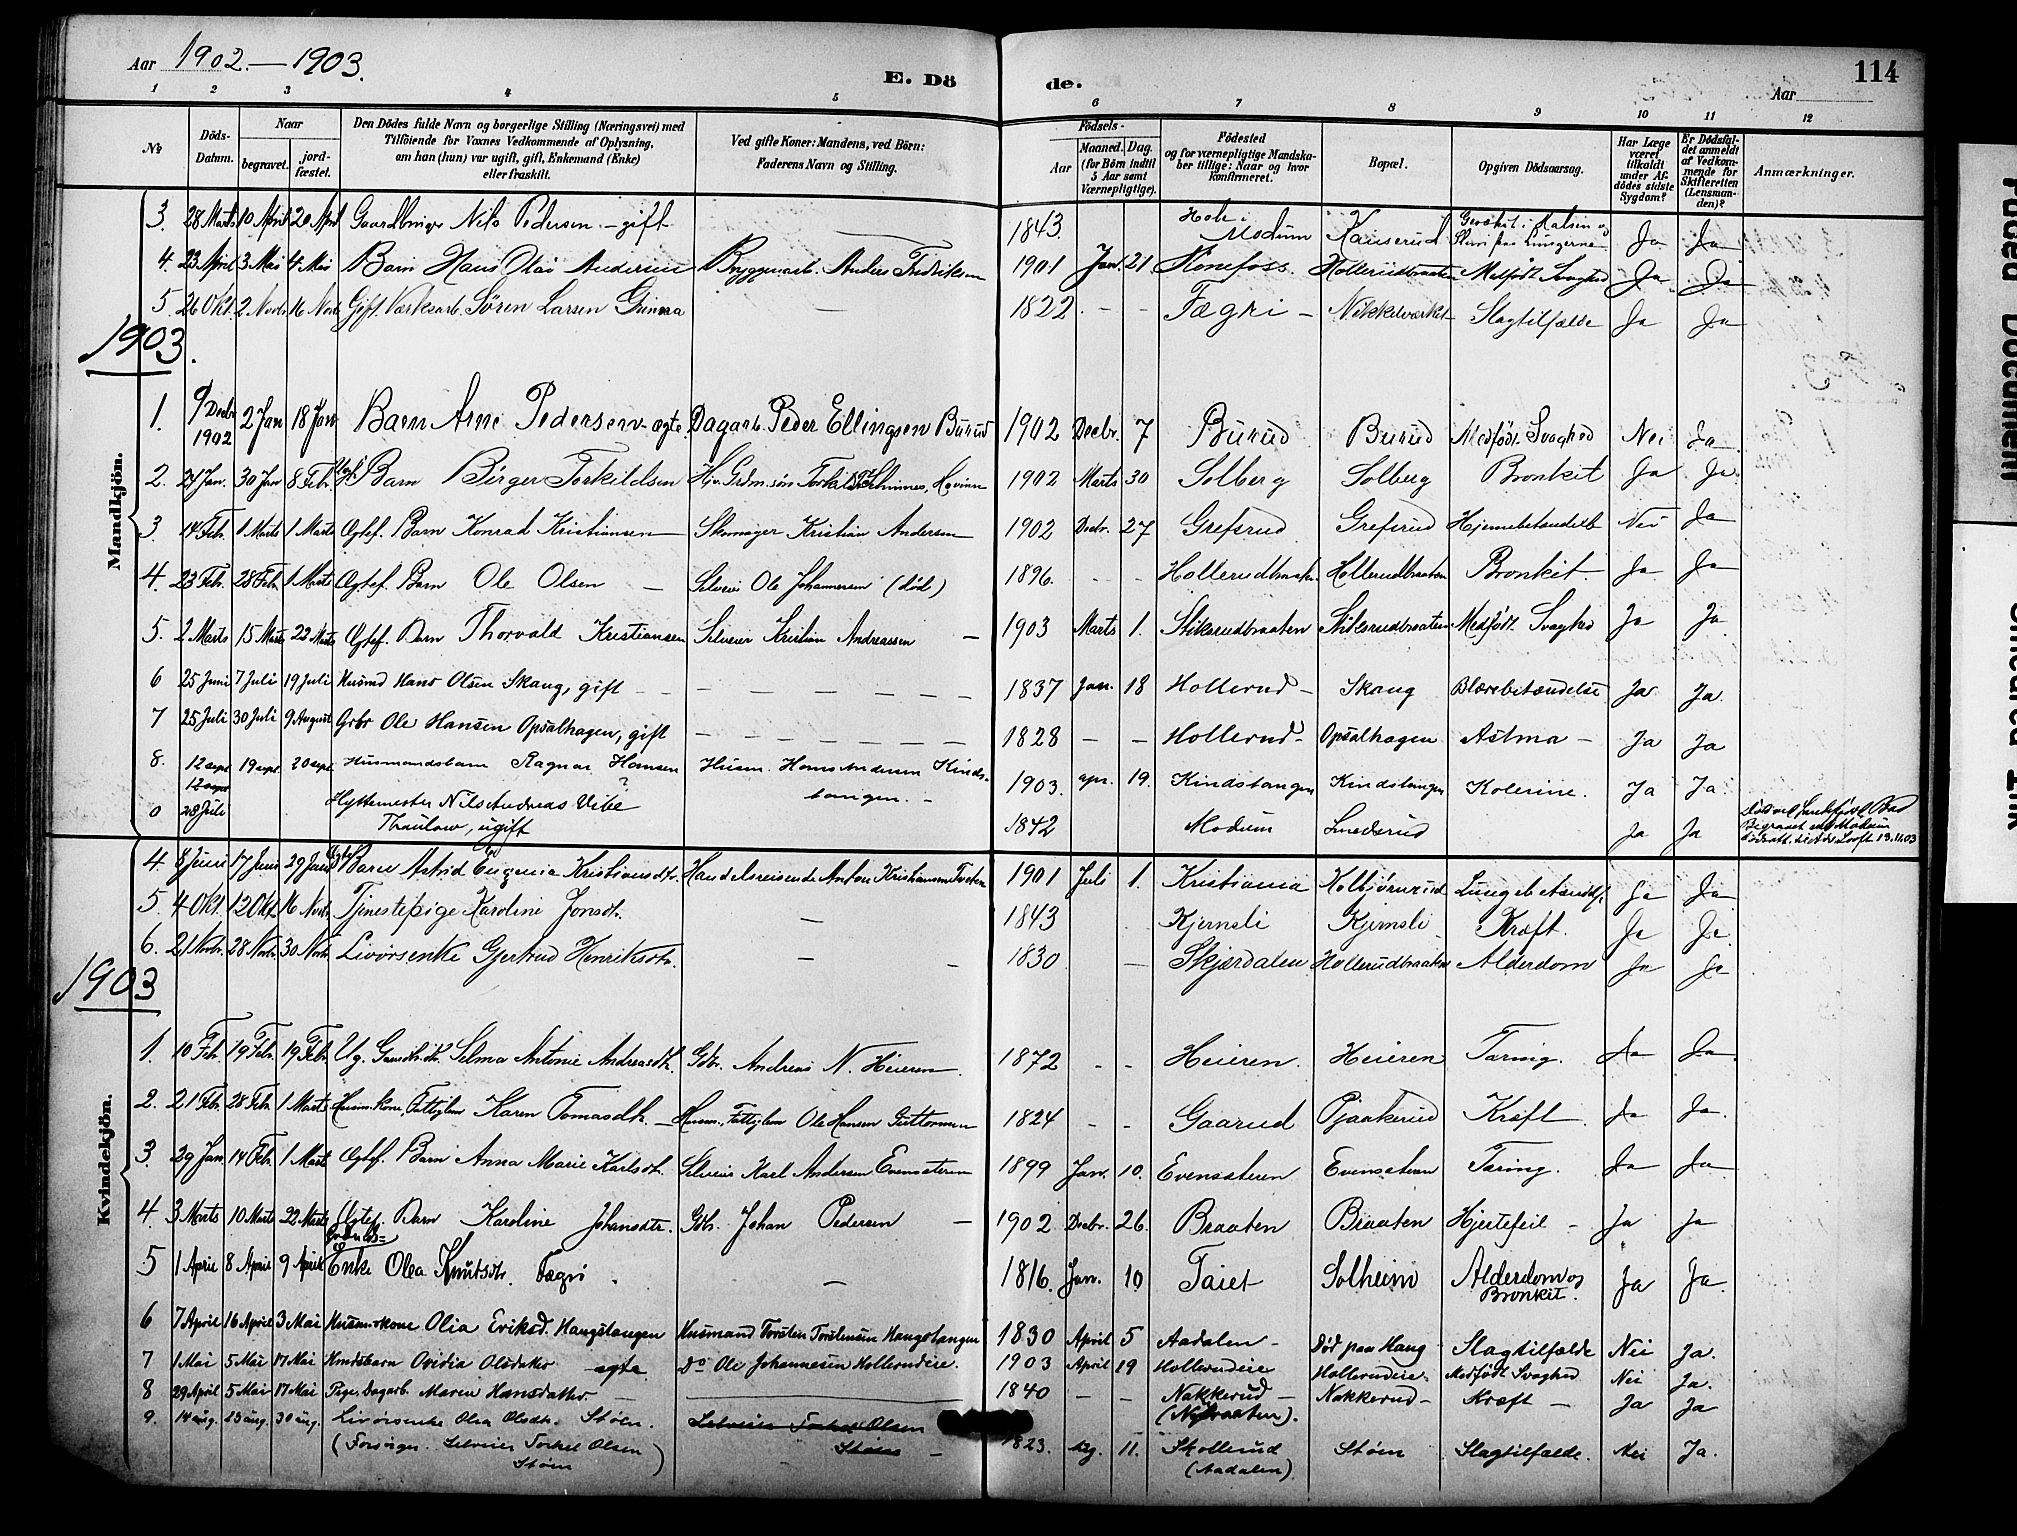 Aar 1902.—1903.
E. Dö
de.
Aar
114
1 2 3 4 5 6 7 8 9 10 11 12
№
Döds-Datum.
Naar
begravet.
jord-fæstet.
Den Dödes fulde Navn og borgerlige Stilling (Næringsvei) med
Tilföiende for Voxnes Vedkommende af Oplysning,
om han (hun) var ugift, gift, Enkemand (Enke)
eller fraskilt.
Ved gifte Koner: Mandens, ved Börn:
Faderens Navn og Stilling.
Födsels-
Aar
Maaned. Dag.
(for Börn indtil
5 Aar samt
Værnepligtige).
Födested
og for værnepligtige Mandska-
ber tillige: Naar og hvor
konfirmeret.
Bopæl.
Opgiven Dödsaarsag.
Har Læge
været
tilkaldt
under Af-
dödes sidste
Sygdom?
Er Dödsfal-
det anmeldt
af Vedkom-
mende for
Skifteretten
(Lensman-
den)?
Anmærkninger.
Mandkjön.
3. 28 Marts 10 April 20 April Gaardbruger Nils Pedersen – gift 1843. Modum Ja Ja
4. 23 April 3 Mai 4 Mai Barn Hans Olai Andersen Bryggearb. Anders Fredriksen 1901 Jan. 21 Hønefoss. Hollerudbraaten Medfødt Svaghed Ja Ja
5. 26 Okt. 2 Novb. 16 Novb. Gift. Værksarb. Sören Larsen Gunna – 1822 . – – Fægri – Nikkelværket Slagtilfælde Ja Ja
1903.
1. 9 Decbr 1902 2 Jan 18 Jan Barn Arne Pedersen – ægte. Dagarb. Peder Ellingsen Burud 1902 Decbr. 7 Burud Burud Medfødt Svaghed Nei Ja
2. 24 Jan. 30 Jan 8 Febr. Barn Birger Torkildsen 1902 Marts 30 Solberg Solberg Bronkit Ja Ja.
3. 14 Febr. 1 Marts 1 Marts Ægtef. Barn Konrad Kristiansen Skomager Kristian Andersen 1902 Decbr. 27 Grefsrud Grefsrud Nei Ja
4. 23 Febr. 28 Febr. 1 Marts Ægtef. Barn Ole Olsen – Selveier Ole Johannessen (död) 1896. – – Hollerudbraaten Hollerudbraaten Bronkit. Ja Ja
5. 2 Marts 15 Marts 22 Marts Ægtef. Barn Thorvald Kristiansen Selveier Kristian Andreassen – 1903 Marts 1. Stiksrudbraaten Stiksrudbraaten Medfødt Svaghed Ja Ja
6 25 Juni 7 Juli 19 Juli Husmd Hans Olsen Skaug, gift – – – – – – – 1837 Jan. 18 Hollerud – Skaug Blærebetændelse Ja Ja.
7 25 Juli 30 Juli 9 August Grbr Ole Hansen Opsalhagen, gift – – – – – – 1828 – – Hollerud – Opsalhagen Astma – Ja Ja
8. 12 sept 19 sept. 20 sept. Husmandsbarn Ragnar Hansen Husm. Hans Andersen Kinds-
tangen. – 1903. apr. 19. Kindstangen Kindstangen Kolerine. Ja Ja.
12 sept
0 28 Juli Hyttemester Nils Andreas Vibe
Thaulow, ugift 1842 Modum Smederud Ja Ja Død ved Sandefjord Bad
Begravet ved Modum
13.11.03
Kvindekjön.
4. 8 Juni 17 Juni 29 Juni Barn Astrid Eugenia Kristiansdt. Handelsreisende Anton Kristiansen 1901 Juli 1. Kristiania Kolbjørnrud Ja Ja
5. 4 Okt. 12 Okt. 16 Novb. Tjenestepige Karoline Jonsdt. – 1843 Kjernsli Kjernsli Kræft. Ja Ja
6. 21 Novbr. 28 Novbr. 30 Novb. Livörsenke Gjertrud Henriksdt. – – 1830 – Skjærdalen Hollerudbraaten Alderdom Ja Ja
1903
1. 10 Febr. 19 Febr. 19 Febr. Ug. Selma Antonie Andreasdt. Gdbr. Andreas N. Heieren. 1872 – – Heieren. Heieren Tæring. Ja Ja
2. 21 Febr. 28 Febr. 1 Marts Husm.kone, Fattiglem Karen Tomasdt. – Husm., Fattiglem Ole Hansen 1824 – – Gaarud Pjaakerud Kræft Ja Ja.
3. 29 Jan 14 Febr. 1 Marts Ægtef. Barn Anna Marie Karlsdt. Selveier Karl Andersen Evensæteren 1899 Jan. 10. Evensæteren Evensæteren Tæring. Ja Ja
4. 3 Marts 10 Marts 22 Marts Ægtef. Barn Karoline Johansdtr. Gdbr. Johan Pedersen – 1902 Decbr. 26. Braaten Braaten Hjertefeil – Ja Ja
5 1 April 8 April 9 April Enke Olea Knutsdtr. Fægri. – 1816. Jan. 10 Taiet Solheim Alderdom og
Bronkit. Ja Ja.
6 7 April 16 April 3 Mai Husm.kone Olia Eriksd. Haugstangen Husmand Torsten Torstensen Haugstangen 1830 April 5 Aadalen – Død paa Haug Slagtilfælde Nei Ja.
7 1 Mai 5 Mai 17 Mai Hmdsbarn Ovidia Olsdatter ægte. Do Ole Johannesen Hollerudeie. 1903 April 19 Hollerudeie Hollerudeie. Medfødt Svaghed Nei Ja.
8 29 April 5 Mai 17 Mai Pige, Dagarb. Maren Hansdatter. – 1840 – – Nakkerud –
(Nybraaten). Nakkerud – Kræft – Ja Ja
9. 14 aug. 23 aug. 30 aug. Livörsenke Olea Olsdt. Støen.
(Forsörger. Selveier Torkel Olsen
Støen) Selveier Torkel Olsen
Støen – 1823. Aug. 11. Skollerud
(Aadalen). Støen Slagtilfælde. Nei Ja.
Faded Document
Smeared Ink